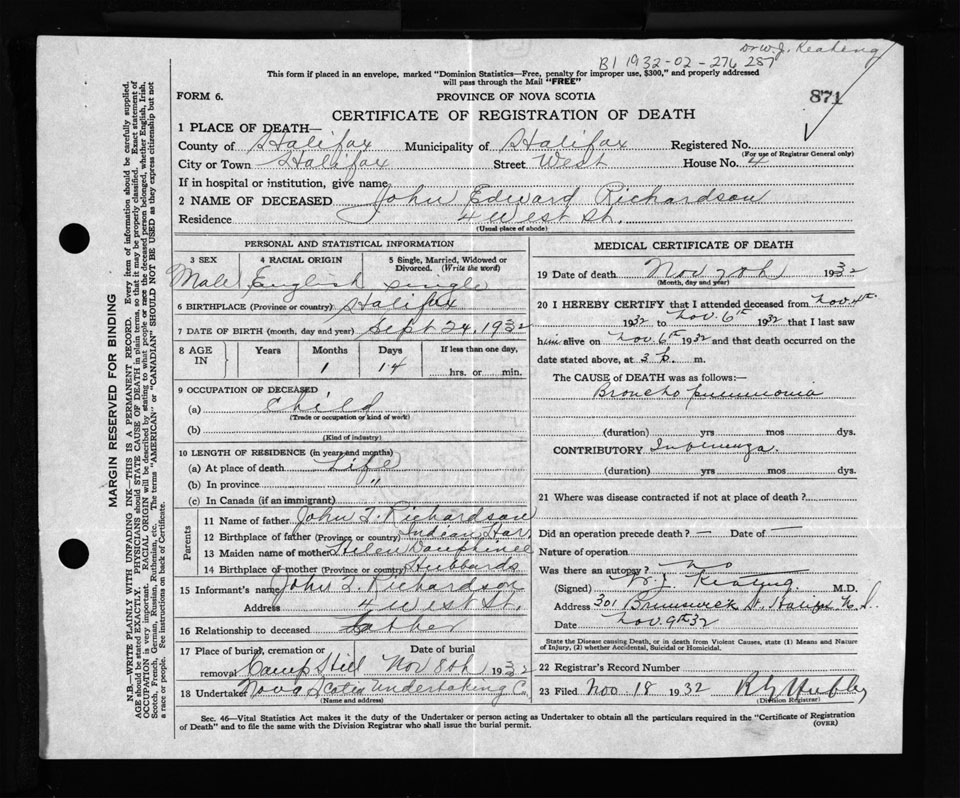 Dr W. J. Keating
B1 1932-02-276 287
This form if placed in an envelope, marked "Dominion Statistics—Free, penalty for improper use, $300," and properly addressed
will pass through the Mail "FREE"
FORM 6.
PROVINCE OF NOVA SCOTIA
871
CERTIFICATE OF REGISTRATION OF DEATH
1 PLACE OF DEATH—
County of Halifax Municipality of Halifax Registered No.
(For use of Registrar General only)
City or Town Halifax Street West House No. 4
If in hospital or institution, give name
2 NAME OF DECEASED John Edward Richardson
Residence 4 West St.
(Usual place of abode)
PERSONAL AND STATISTICAL INFORMATION
3 SEX 4 RACIAL ORIGIN 5 Single, Married, Widowed or Divorced. (Write the word)
Male English Single
6 BIRTHPLACE (Province or country) Halifax
7 DATE OF BIRTH (month, day and year) Sept 24, 1932
8 AGE IN Years Months Days If less than one day,
1 14 hrs. or min.
9 OCCUPATION OF DECEASED
(a) Child
(Trade or occupation or kind of work)
(b)
(Kind of industry)
10 LENGTH OF RESIDENCE (in years and months)
(a) At place of death Life
(b) In province "
(c) In Canada (if an immigrant)
Parents
11 Name of father John T. Richardson
12 Birthplace of father (Province or country) Indian Har.
13 Maiden name of mother Helen Dauphinee
14 Birthplace of mother (Province or country) Hubbards
15 Informant's name John T. Richardson
Address 4 West St.
16 Relationship to deceased Father
17 Place of burial, cremation or removal Date of burial
Camp Hill Nov 8th 1932
18 Undertaker Nova Scotia Undertaking C.
(Name and address)
MEDICAL CERTIFICATE OF DEATH
19 Date of death Nov 7th 1932
(Month, day and year)
20 I HEREBY CERTIFY that I attended deceased from Nov 4th
1932 to Nov. 6th 1932 that I last saw
him alive on Nov 6th 1932 and that death occurred on the
date stated above, at 3 m.
The CAUSE of DEATH was as follows:
Broncho pneumonia
(duration) yrs mos dys.
CONTRIBUTORY Influenza.
(duration) yrs mos dys.
21 Where was disease contracted if not at place of death?
Did an operation precede death? — Date of —
Nature of operation
Was there an autopsy? no
(Signed) W. J. Keating. M.D.
Address 301 Brunswick St. Halifax N.S.
Date Nov. 9th 32
State the Disease causing Death, or in death from Violent Causes, state (1) Means and Nature
of Injury, (2) whether Accidental, Suicidal or Homicidal.
22 Registrar's Record Number
23 Filed Nov 18 1932
(Division Registrar)
Sec. 46—Vital Statistics Act makes it the duty of the Undertaker or person acting as Undertaker to obtain all the particulars required in the "Certificate of Registration
of Death" and to file the same with the Division Registrar who shall issue the burial permit.
(OVER)
MARGIN RESERVED FOR BINDING
N.B.—WRITE PLAINLY WITH UNFADING INK—THIS IS A PERMANENT RECORD. Every item of information should be carefully supplied.
AGE should be stated EXACTLY. PHYSICIANS should STATE CAUSE OF DEATH in plain terms, so that it may be properly classified. Exact statement of
OCCUPATION is very important. RACIAL ORIGIN will be described by stating to what people or race the deceased person belonged, whether English, Irish,
Scotch, French, German, Russian, Ruthenian, etc. The terms "AMERICAN" or "CANADIAN" SHOULD NOT BE USED as they express citizenship but not
a race or people. See instructions on back of Certificate.